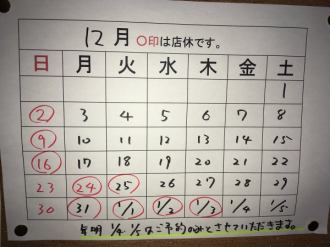 12月 〇印は店休です。
日 月 火 水 木 金 土
1
2 3 4 5 6 7 8
9 10 11 12 13 14 15
16 17 18 19 20 21 22
23 24 25 26 27 28 29
30 31 1/1 1/2 1/3 1/4 1/5
年明 1/4 1/5はご予約のみとさせていただきます。